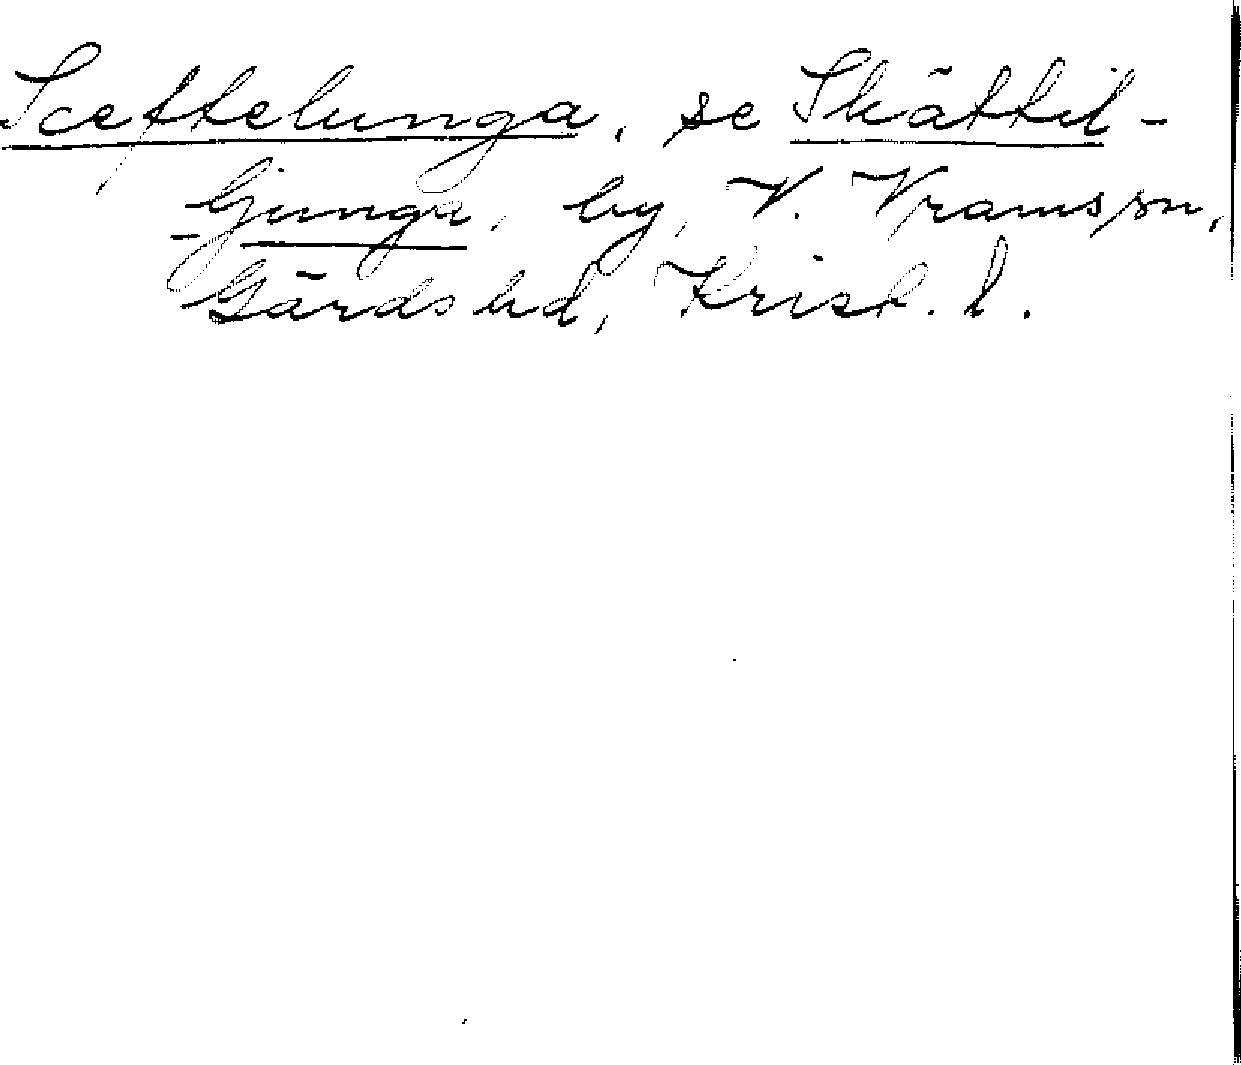 Sceftelunga, se Skättil-
ljunga, by, V. Vramssn,
Gärds hd, Krist. l.